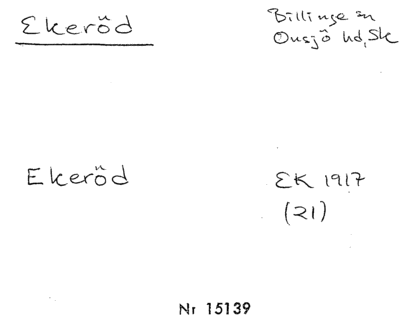 Ekeröd
Billinge sn
Onsjö hd, Sk
Ekeröd
EK 1917
(21)
Nr 15139